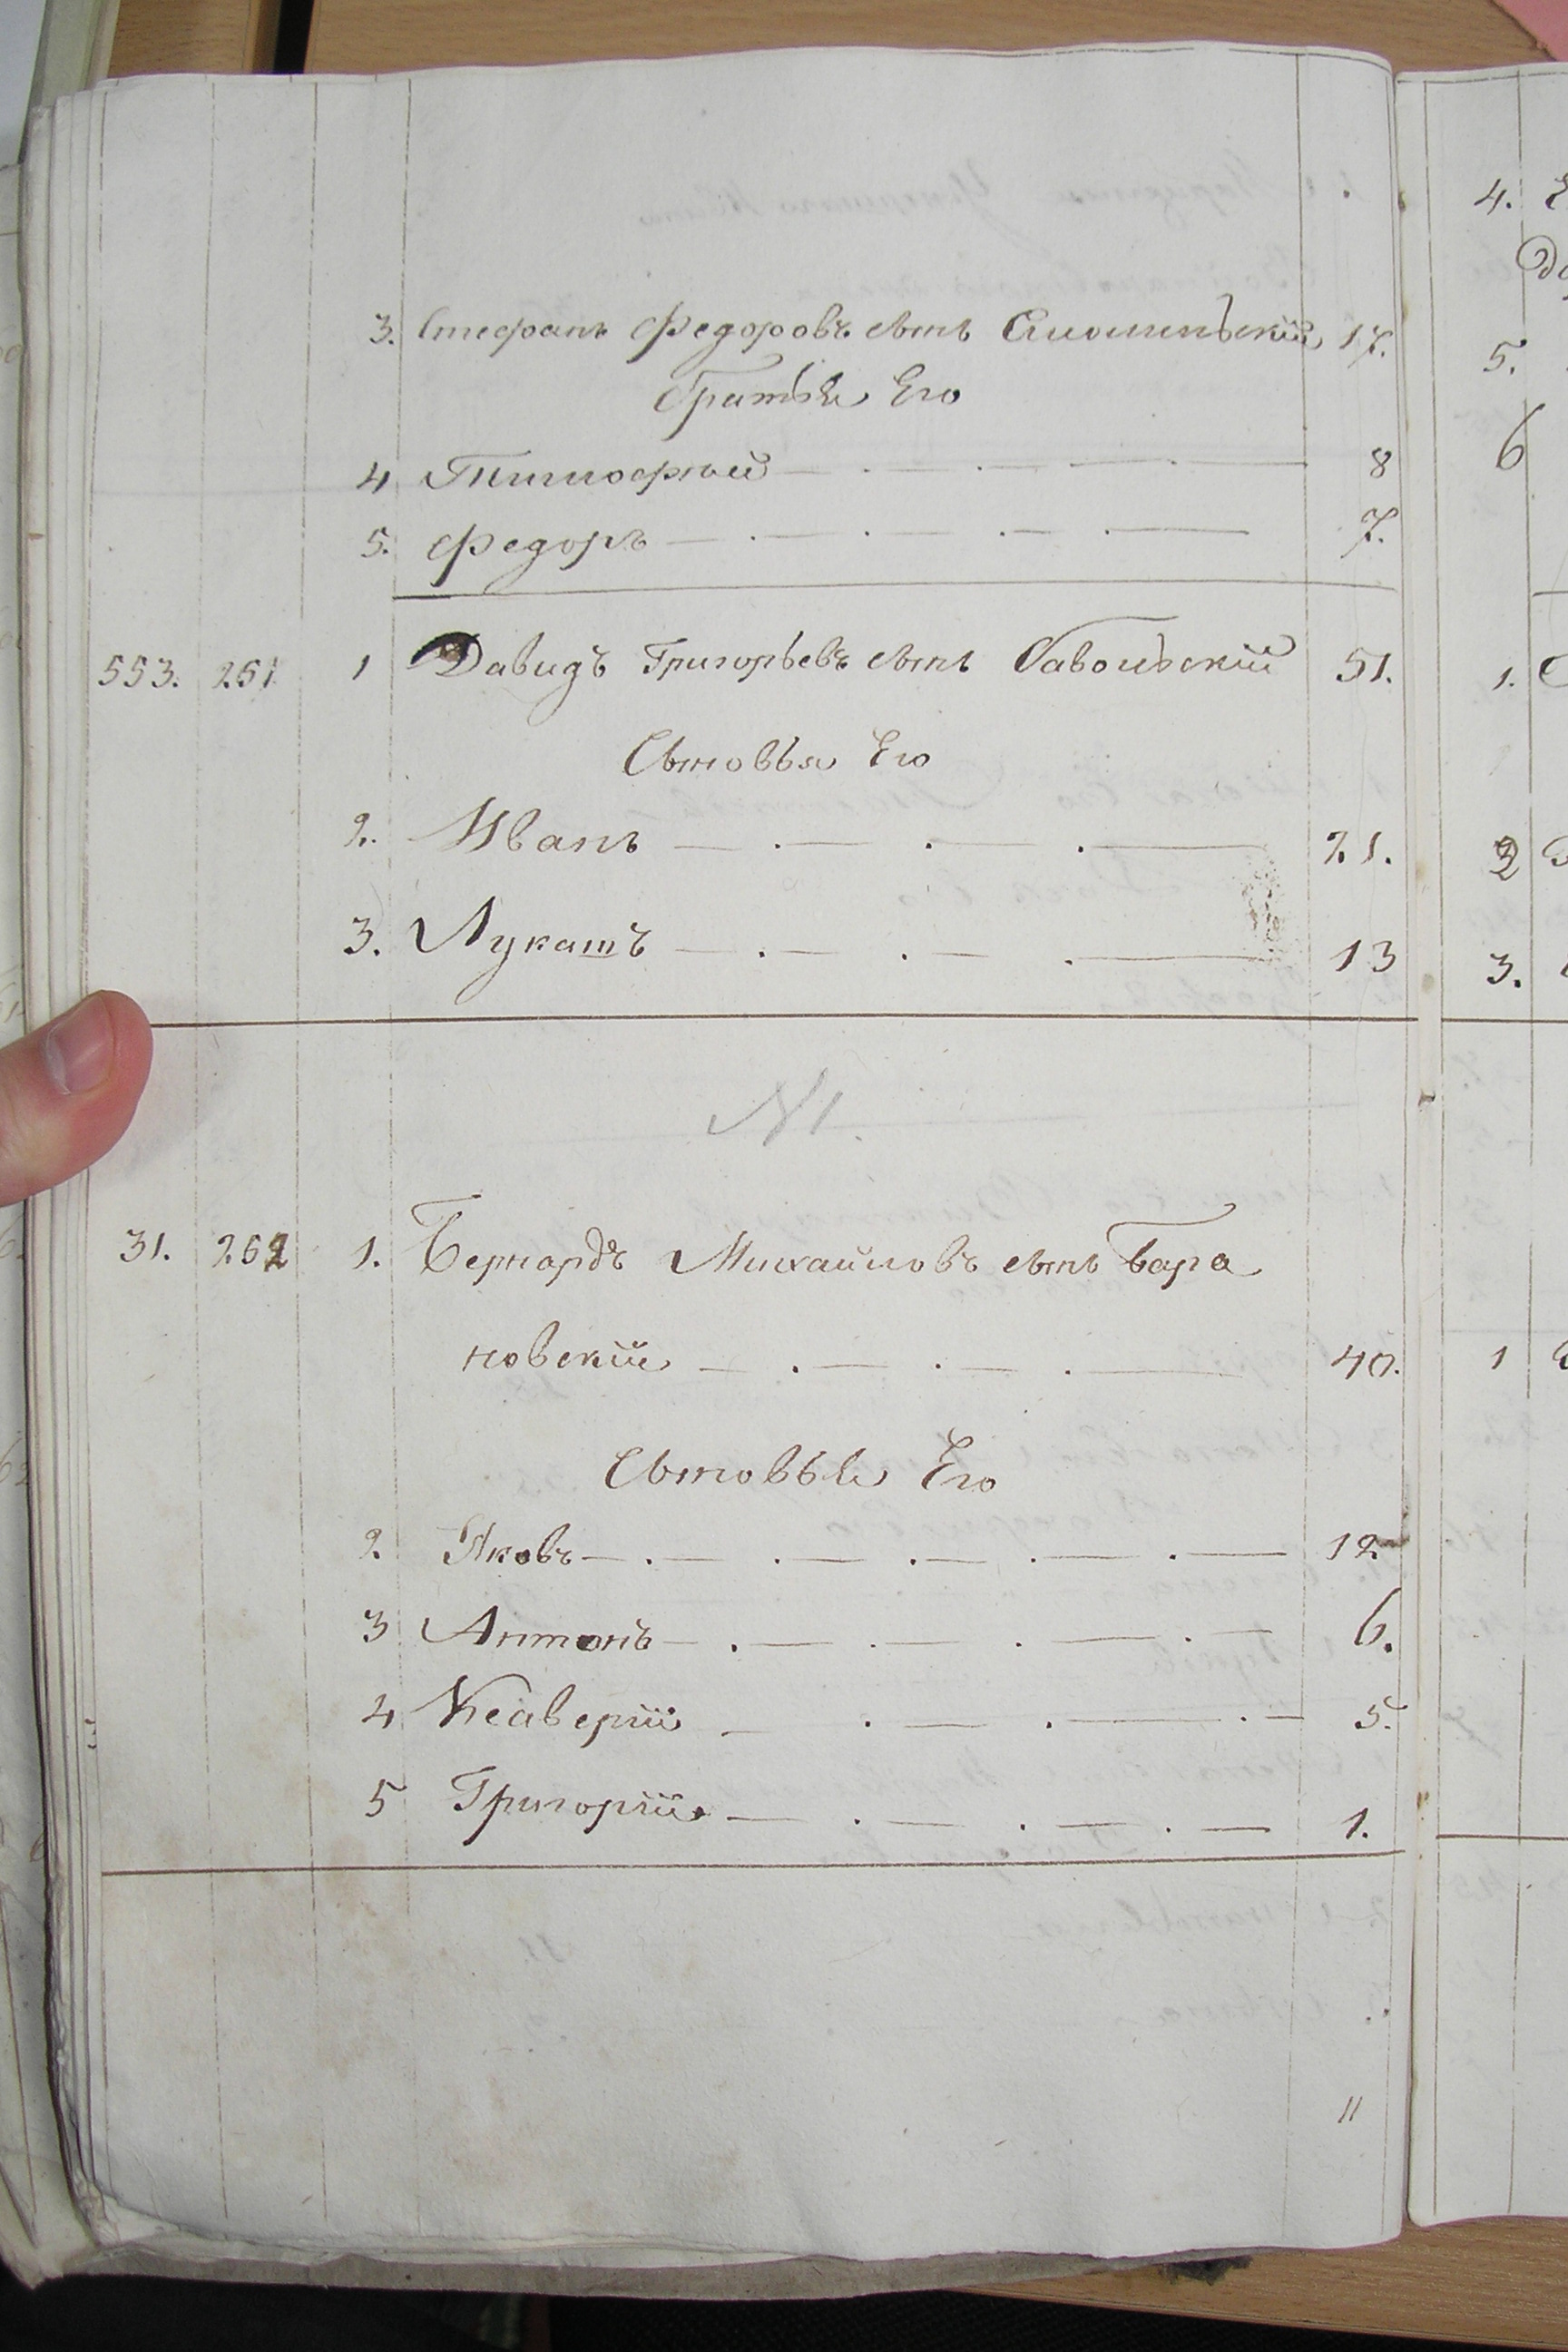 3. Стефанъ Федоровъ сынъ Смолинскій 17.
Братья Его
4 Тимофѣй 8
5. Федоръ 7.
553. 251 1 Давидъ Григорьевъ сынъ 51.
Сыновья Его
2. Иванъ 21.
3. Лукашъ 13
N1.
31. 252 1. Бернардъ Михайловъ сынъ Бара
новскій 40.
Сыновья Его
2. Яковъ 12
3 Антонъ 6.
4 Ксаверій 5.
5 Григорій 1.
4.
5.
6
1.
2
3.
1